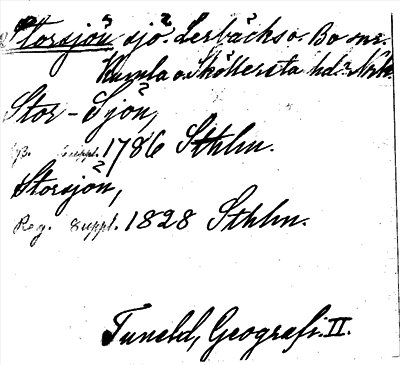 Storsjön sjö. Lerbäcks o. Bo snr.
Kumla o. Sköllersta hd. Nrk.
Stor-Sjön,
suppl. 1786 Sthlm.
Storsjön,
Reg. suppl. 1828 Sthlm.
Tuneld, Geografi. II.